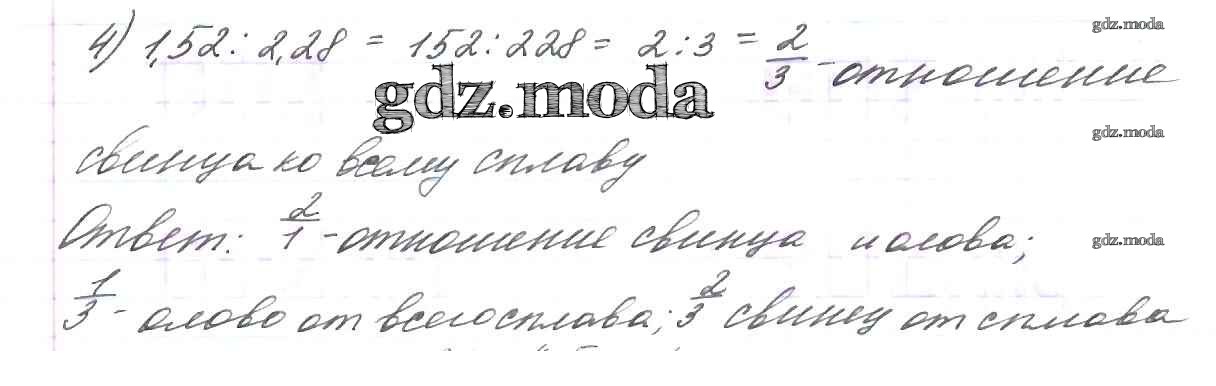 4) 1,52 : 2,28 = 152 : 228 = 2 : 3 = 2/3 - отношение
gdz.moda
gdz.moda
gdz.moda
свинца ко всему сплаву
Ответ: 2/1 - отношение свинца и олова;
gdz.moda
1/3 - олово от всего сплава; 2/3 свинец от сплава